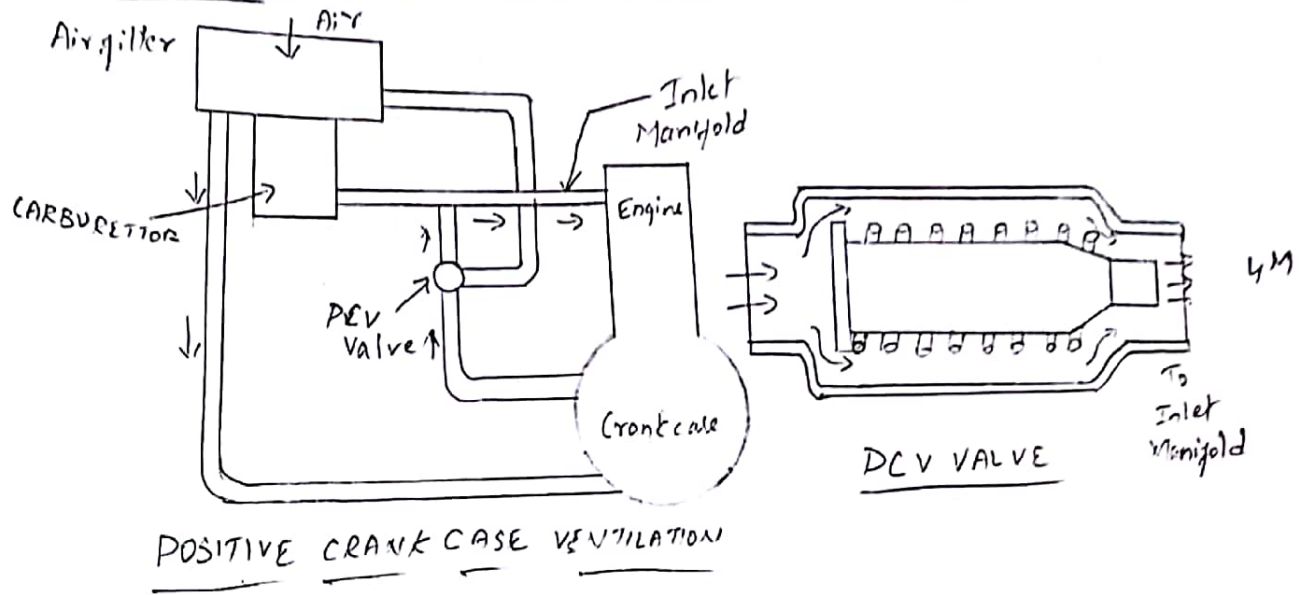 Air
Airfilter
Inlet
Manifold
CARBURETTOR
Engine
PCV
Valve
4M
Crankcase
To
Inlet
Manifold
PCV VALVE
POSITIVE CRANK CASE VENTILATION